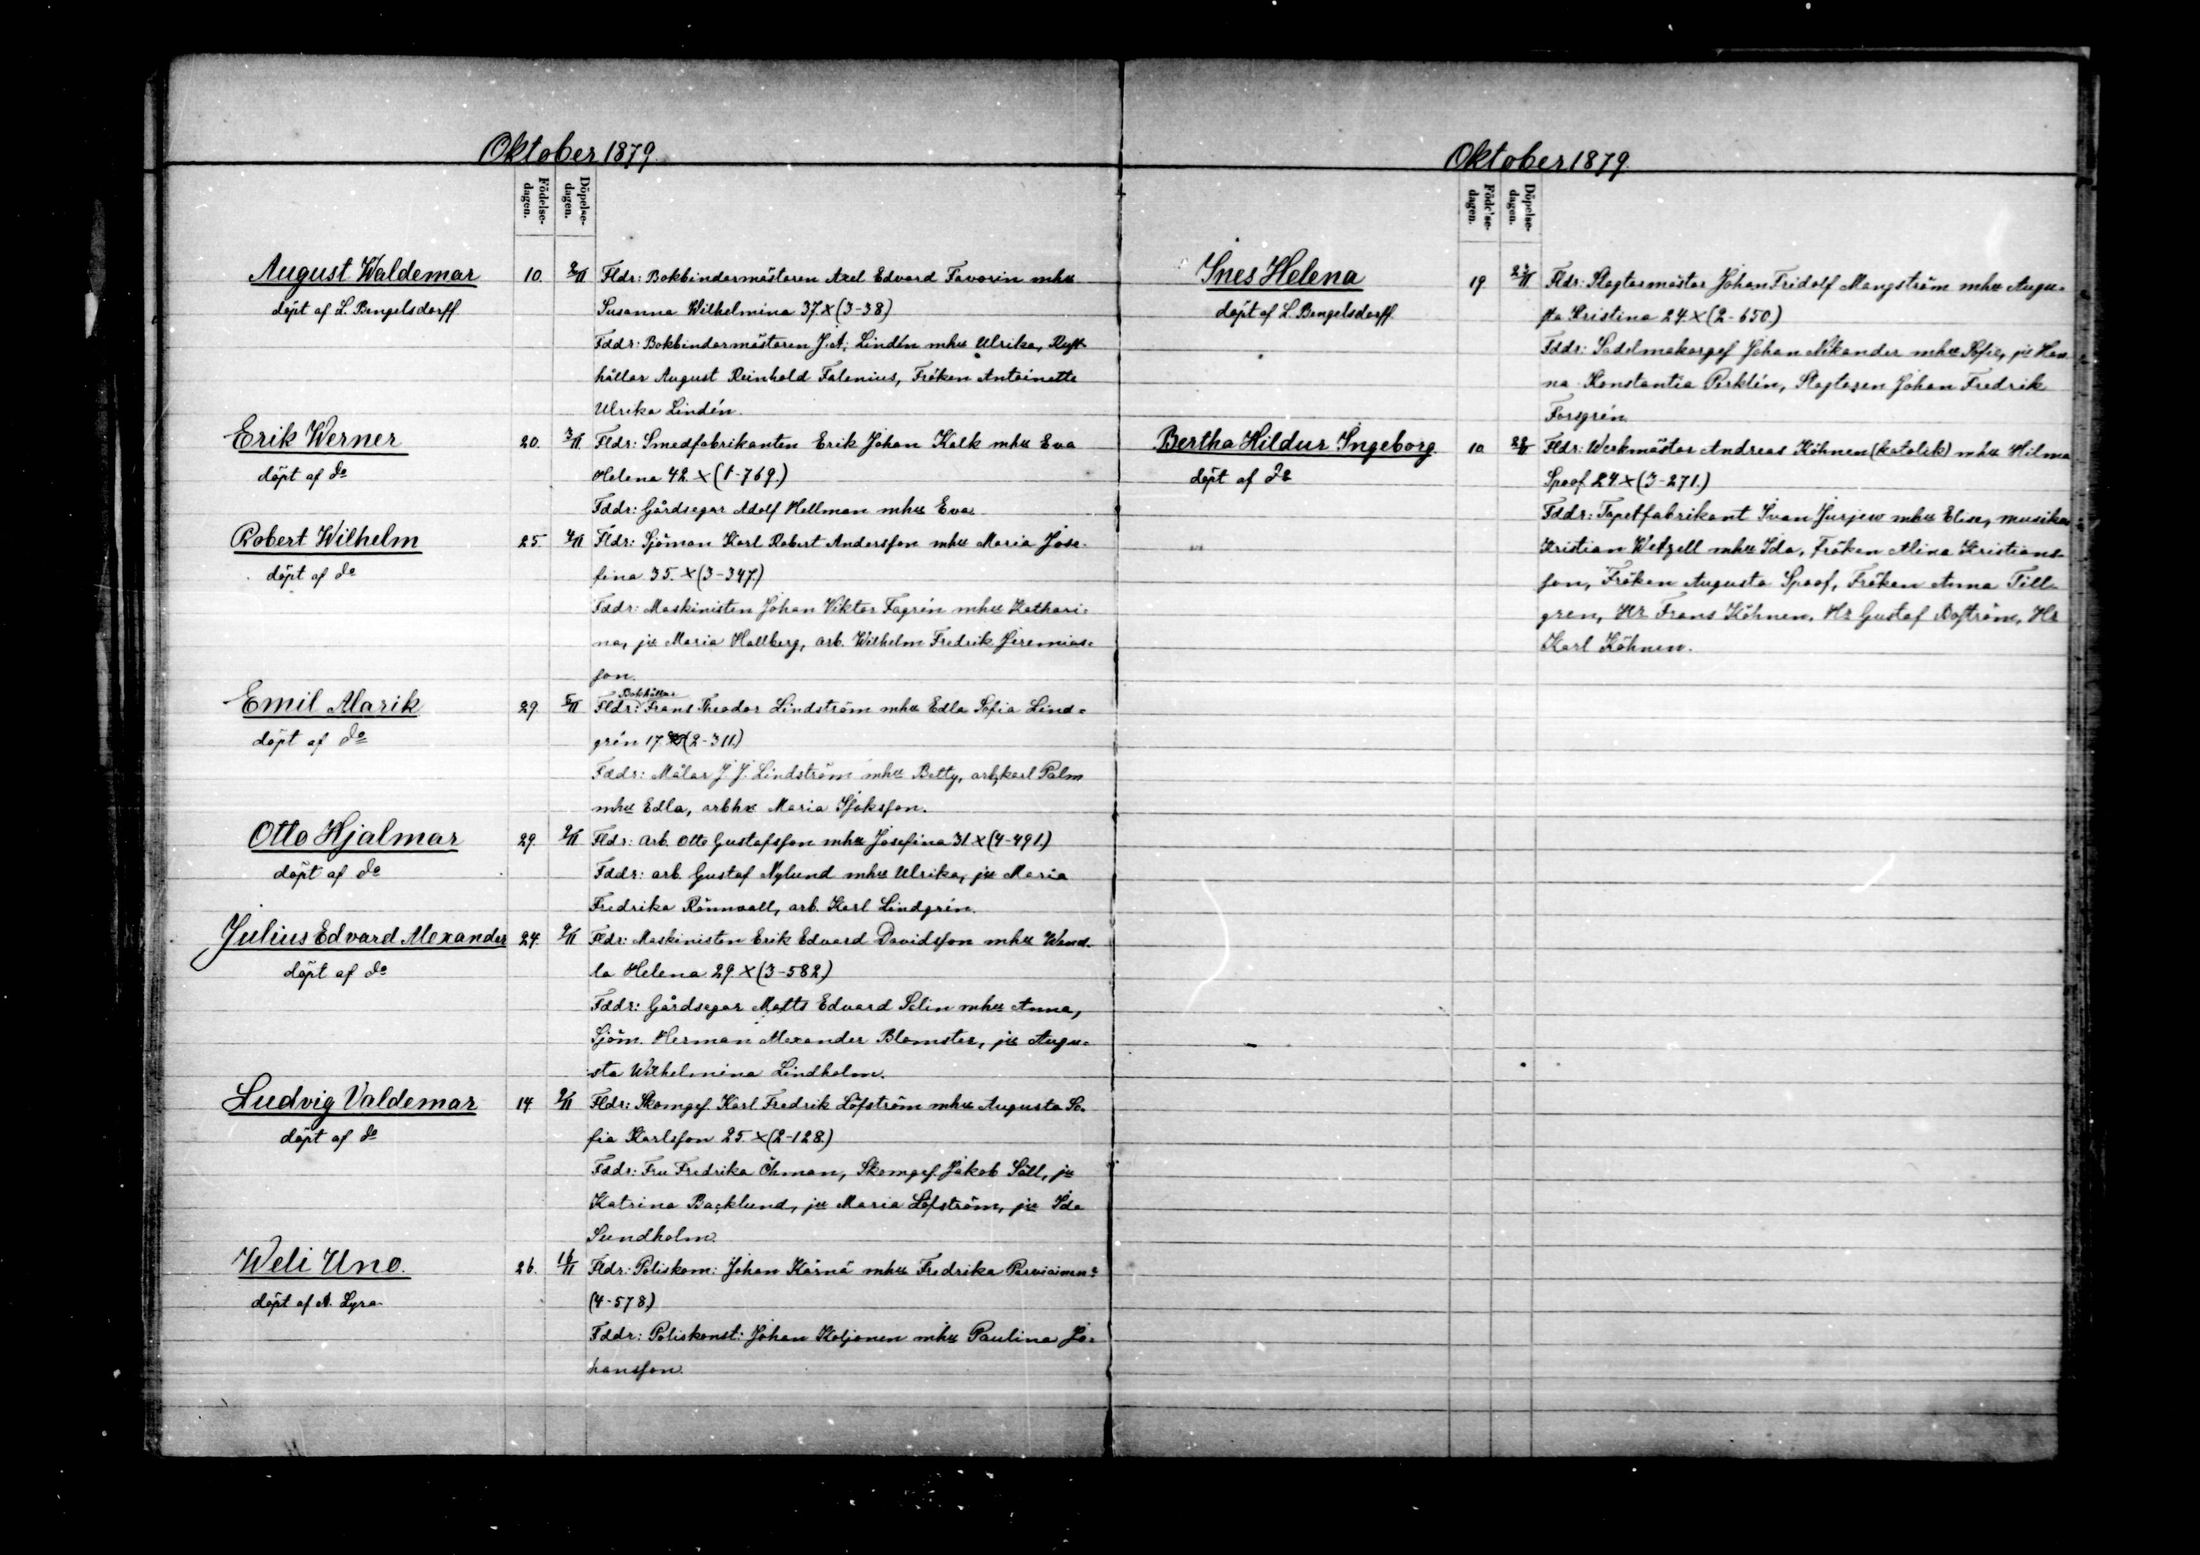 Oktober 1879.
Födelse-dagen.
Döpelse-dagen.
August Waldemar 10. 2/11 Fldr: Bokbindarmästaren Axel Edvard Favorin mhu
döpt af L. Bengelsdorff Susanna Wilhelmina 37.x(3-38)
Fddr: Bokbindarmästaren J. A. Lindén mhu Ulrika, Rust-
hållar August Reinhold Falenius, Fröken Antoinette
Ulrika Lindén.
Erik Werner 20. 3/11 Fldr: Smedfabrikanten Erik Johan Kalk mhu Eva
döpt af do Helena 42.x(1-769.)
Fddr: Gårdsegar Adolf Hellman mhu Eva
Robert Wilhelm 25. 4/11 Fldr: Sjöman Karl Robert Andersson mhu Maria Jose-
döpt af do fina 35.x(3-347.)
Fddr: Maskinisten Johan Viktor Fagrén mhu Kathari-
na, ju Maria Hallberg, arb. Wilhelm Fredrik Jeremias-
son.
Bokhållar
Emil Alarik 29 5/11 Fldr: Frans Theodor Lindström mhu Edla Sofia Lind-
döpt af do grén 17 (2-311.)
Fddr: Målar J. J. Lindström mhu Betty, arbkarl Palm
mhu Edla, arbhu Maria Isaksson.
Otto Hjalmar 29. 9/11 Fldr: arb. Otto Gustafsson mhu Josefina 31 x(4-491.)
döpt af do Fddr: arb. Gustaf Nylund mhu Ulrika, ju Maria
Fredrika Rönnvall, arb. Karl Lindgrén.
Julius Edvard Alexander 24. 9/11 Fldr: Maskinisten Erik Edvard Davidsson mhu Wend-
döpt af do la Helena 29.x(3-582)
Fddr: Gårdsegar Matts Edvard Selin mhu Anna,
Sjöm. Herman Alexander Blomster, ju Augu-
sta Wilhelmina Lindholm.
Ludvig Valdemar 14 9/11 Fldr: Skomges. Karl Fredrik Löfström mhu Augusta So-
döpt af do fia Karlsson 25.x(2-128.)
Fddr: Fru Fredrika Öhman, Skomges. Jakob Säll, ju
Katrina Backlund, ju Maria Löfström, ju Ida
Sundholm.
Weli Uno. 26. 16/11 Fldr: Poliskom: Johan Kärnä mhu Fredrika Parviainen
döpt af A. Lyra (4-578)
Fddr: Poliskonst: Johan Koljonen mhu Paulina Jo-
hansson.
Oktober 1879.
Födelse-dagen.
Döpelse-dagen.
Ines Helena 19 23/11 Fldr: Slagtarmästar Johan Fridolf Mangström mhu Augu-
döpt af L. Bengelsdorff sta Kristina 24.x(2-650.)
Fddr: Sadelmakarges Johan Nikander mhu Sofie, ju Han-
na Konstantia Perklén, Slagtaren Johan Fredrik
Forsgrén.
Bertha Hildur Ingeborg 10 28/11 Fldr: Werkmästar Andreas Köhnen (katolik) mhu Hilma
döpt af do Spoof 24.x(3-271.)
Fddr: Tapetfabrikant Ivan Jurjew mhu Elise, musiker
Kristian Wetzell mhu Ida, Fröken Alina Kristians-
son, Fröken Augusta Spoof, Fröken Anna Till-
gren, Hr Frans Köhnen, Hr Gustaf Hr
Karl Köhnen.